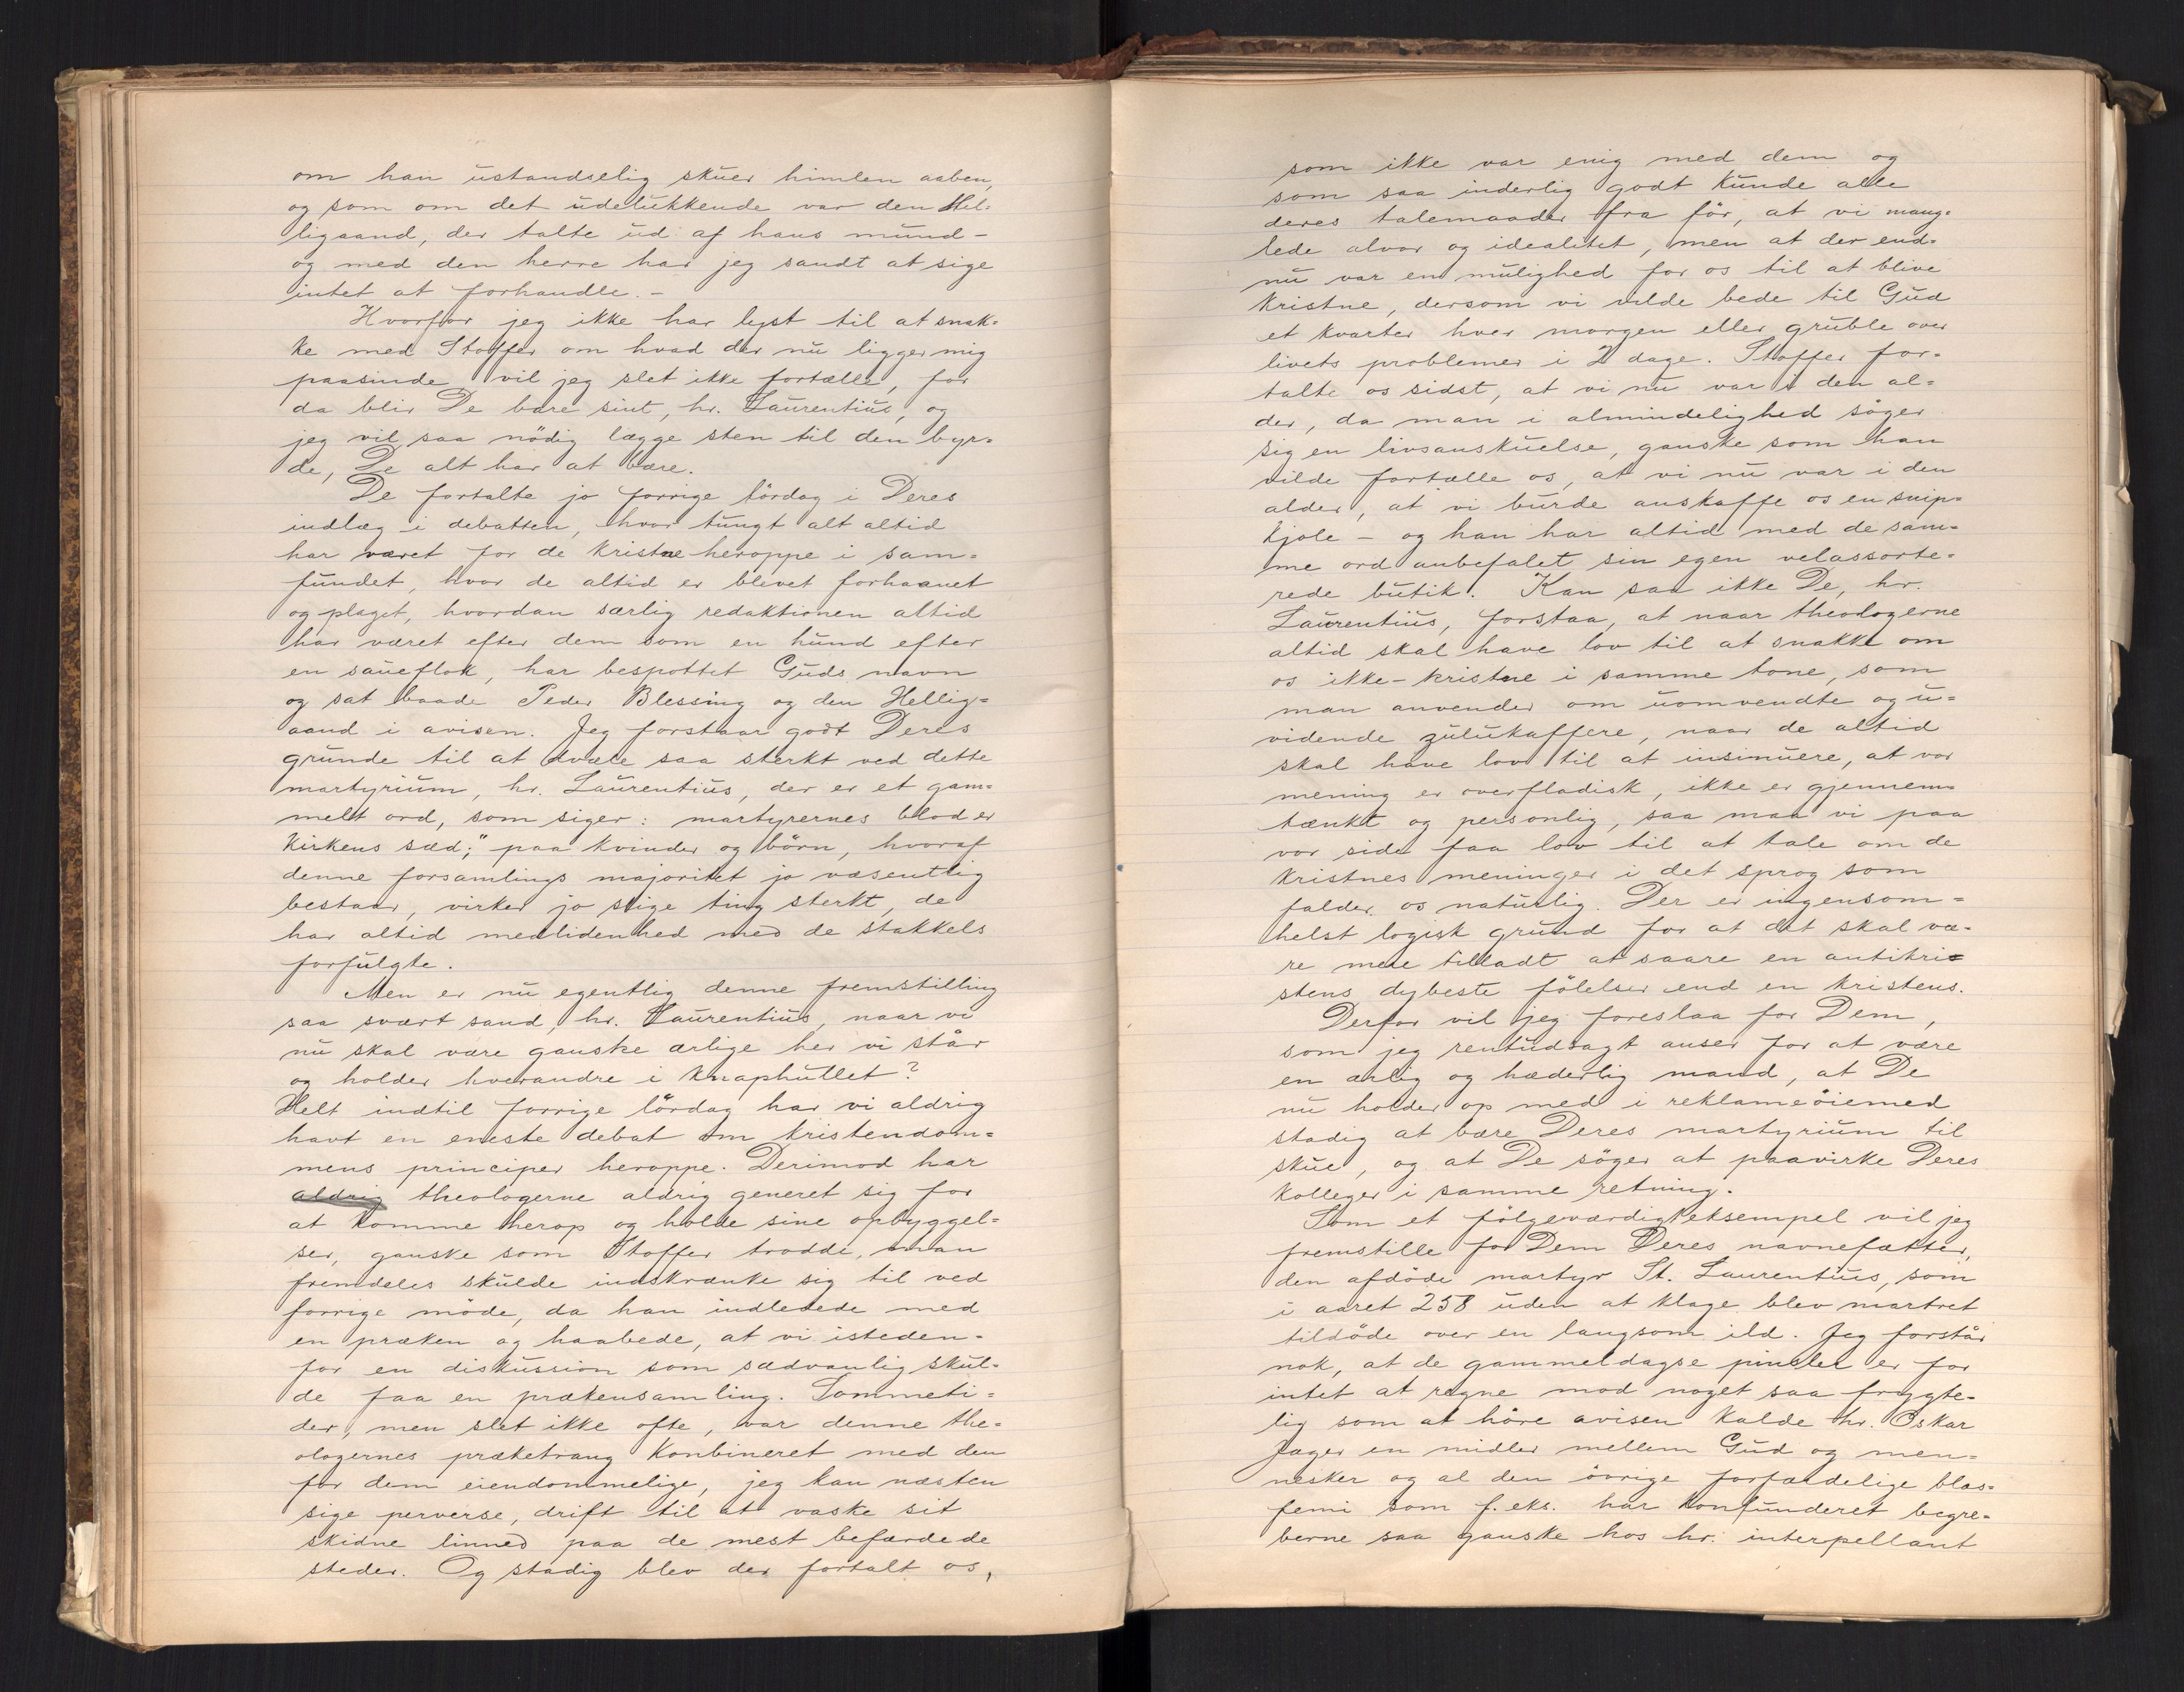 om han ustandselig skuer himlen aaben,
og som om det udelukkende var den Hel-
ligaand, der talte ud af hans mund -
og med den herre har jeg sandt at sige
intet at forhandle. -
Hvorfor jeg ikke har lyst til at snak-
ke med Stoffer om hvad der nu ligger mig
paasinde vil jeg slet ikke fortælle, for
da blir De bare sint, hr. Laurentius, og
jeg vil saa nödig lægge sten til den byr-
de, De alt har at bære.
De fortalte jo forrige lördag i Deres
indlæg i debatten, hvor tungt alt altid
har været for de kristne heroppe i sam-
fundet, hvor de altid er blevet forhaanet
og plaget, hvordan særlig redaktionen altid
har været efter dem som en hund efter
en saueflok, har bespottet Guds navn
og sat baade Peder Blessing og den Hellig-
aand i avisen. Jeg forstaar godt Deres
grunde til at dvæle saa sterkt ved dette
martyrium, hr. Laurentius, der er et gam-
melt ord, som siger: martyrernes blod er
kirkens sæd;" paa kvinder og börn, hvoraf
denne forsamlings majoritet jo væsentlig
bestaar, virker jo slige ting sterkt, de
har altid medlidenhed med de stakkels
forfulgte.
Men er nu egentlig denne fremstilling
saa svært sand, hr. Laurentius, naar vi
nu skal være ganske ærlige her vi står
og holder hverandre i knaphullet?
Helt indtil forrige lördag har vi aldrig
havt en eneste debat om kristendom-
mens principer heroppe. Derimod har
aldrig theologerne aldrig generet sig for
at komme herop og holde sine opbyggel-
ser, ganske som Stoffer trodde, man
fremdeles skulde indskrænke sig til ved
forrige möde, da han indledede med
en præken og haabede, at vi isteden-
for en diskussion som sædvanlig skul-
de faa en prækensamling. Sommeti-
der, men slet ikke ofte, var denne the-
ologernes præketrang kombineret med den
for dem eiendommelige, jeg kan næsten
sige perverse, drift til at vaske sit
skidne linned paa de mest befærdede
steder. Og stadig blev der fortalt os,
som ikke var enig med dem og
som saa inderlig godt kunde alle
deres talemaader fra för, at vi mang-
lede alvor og idealitet, men at der end-
nu var en mulighed for os til at blive
kristne, dersom vi vilde bede til Gud
et kvarter hver morgen eller gruble over
livets problemer i 2 dage. Stoffer for-
talte os sidst, at vi nu var i den al-
der, da man i almindelighed söger
sig en livsanskuelse, ganske som han
vilde fortælle os, at vi nu var i den
alder, at vi burde anskaffe os en snip-
kjole - og han har altid med de sam-
me ord anbefalet sin egen velassorte-
rede butik. Kan saa ikke De, hr.
Laurentius, forstaa, at naar theologerne
altid skal have lov til at snakke om
os ikke-kristne i samme tone, som
man anvender om uomvendte og u-
vidende zulukaffere, naar de altid
skal have lov til at insinuere, at vor
mening er overfladisk, ikke er gjennem-
tænkt og personlig, saa maa vi paa
vor side faa lov til at tale om de
kristnes meninger i det sprog som
falder os naturlig. Der er ingensom-
helst logisk grund for at det skal væ-
re mere tilladt at saare en antikri-
stens dybeste fölelser end en kristens.
Derfor vil jeg foreslaa for Dem,
som jeg rentudsagt anser for at være
en ærlig og hæderlig mand, at De
nu holder op med i reklameöiemed
stadig at bære Deres martyrium til
skue, og at De söger at paavirke Deres
kolleger i samme retning.
Som et fölgeværdigt eksempel vil jeg
fremstille for Dem Deres navnefætter,
den afdöde martyr St. Laurentius, som
i aaret 258 uden at klage blev martret
tildöde over en langsom ild. Jeg forstår
nok, at de gammeldagse pinsler er for
intet at regne mod noget saa frygte-
lig som at höre avisen kalde hr. Oskar
Jæger en midler mellem Gud og men-
nesker og al den övrige forfærdelige blas-
femi som f. eks. har konfunderet begre-
berne saa ganske hos hr. interpellant